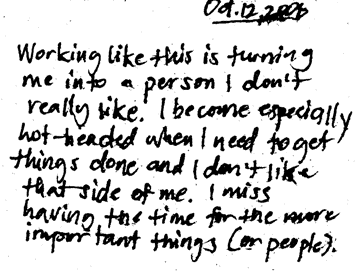 Oct. 12, 2006
Working like this is turning
me into a person I don't
really like. I become especially
hot-headed when I need to get
things done and I don't like
that side of me. I miss
having the time for the more
important things (or people).